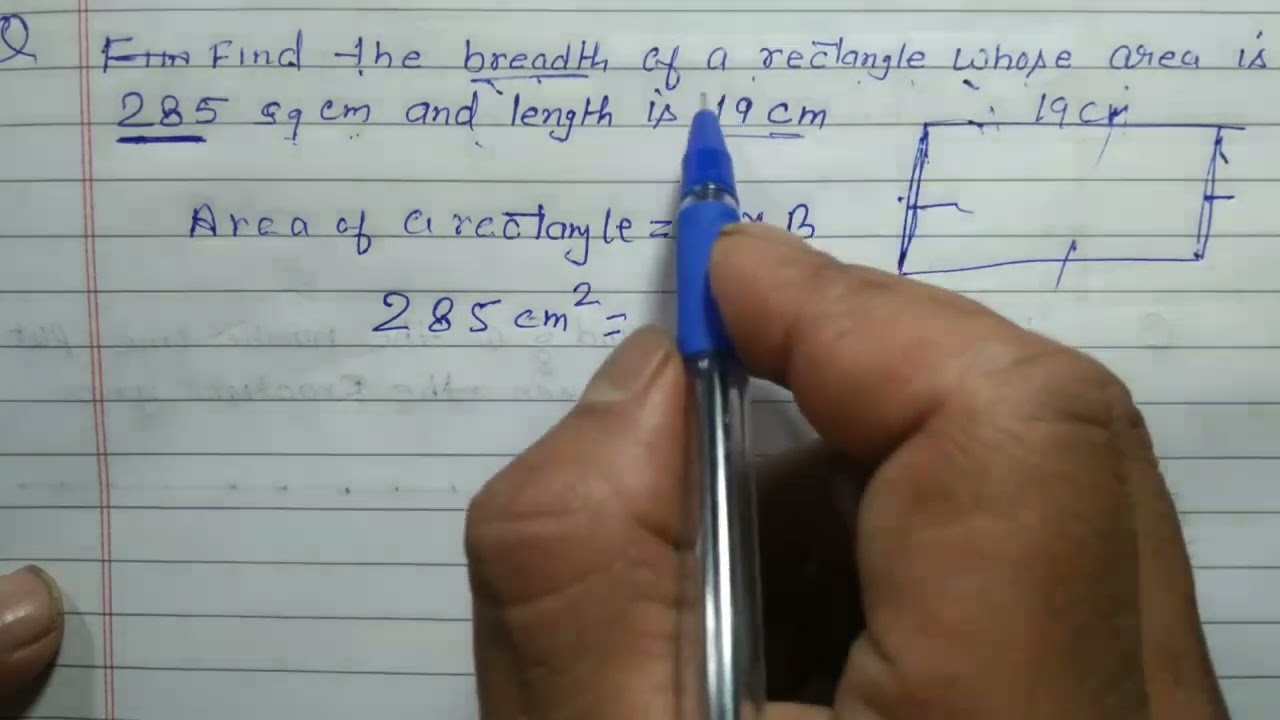 Q Find the breadth of a rectangle whose area is
285 sq cm and length is 19 cm
19cm
Area of a rectangle = B
285 cm² =